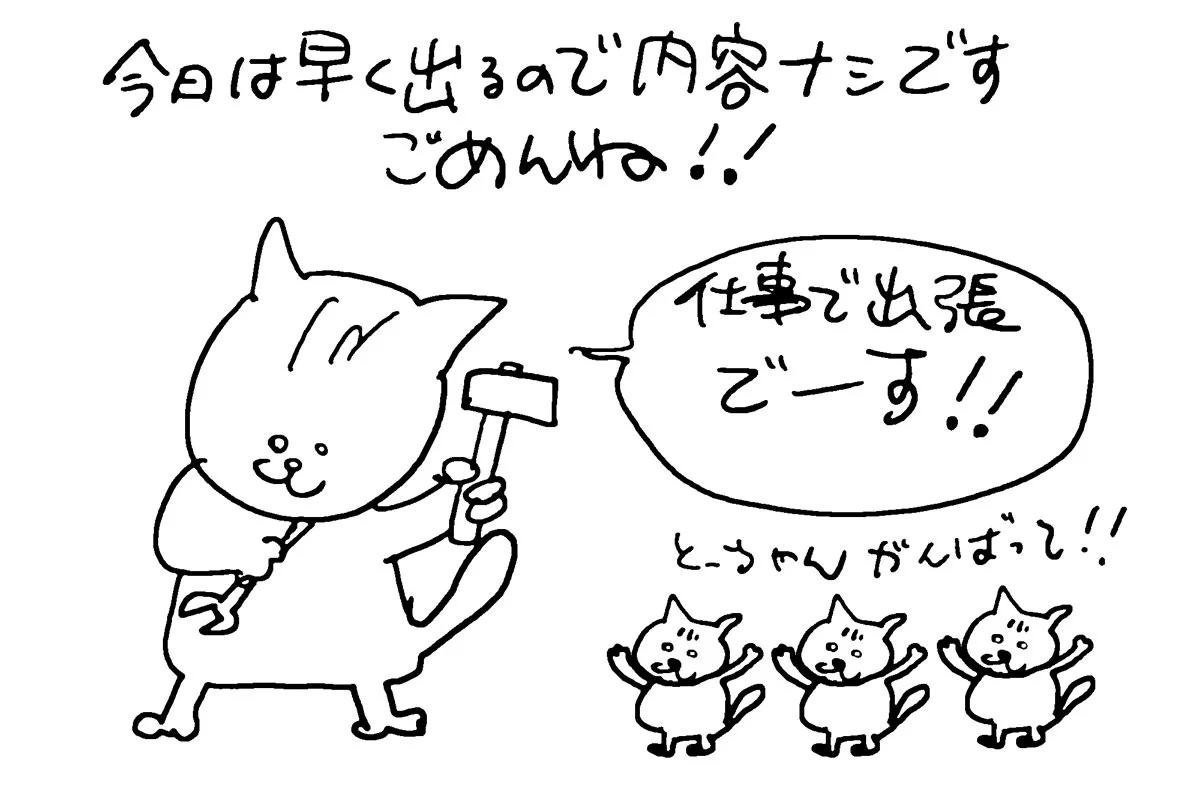 今日は早く出るので内容ナシです
ごめんね!!
仕事で出張
でーす!!
とーちゃんがんばって!!